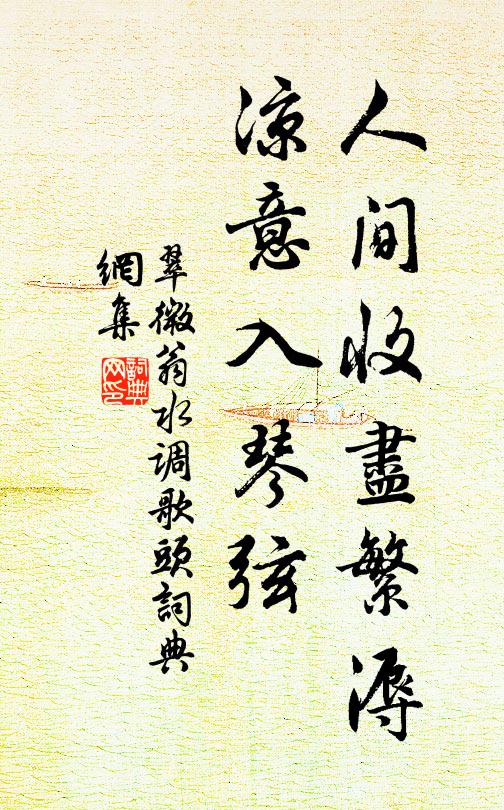 人間收盡繁溽
涼意入琴弦
翠微翁水調歌頭詞典
網集
詞典
网印